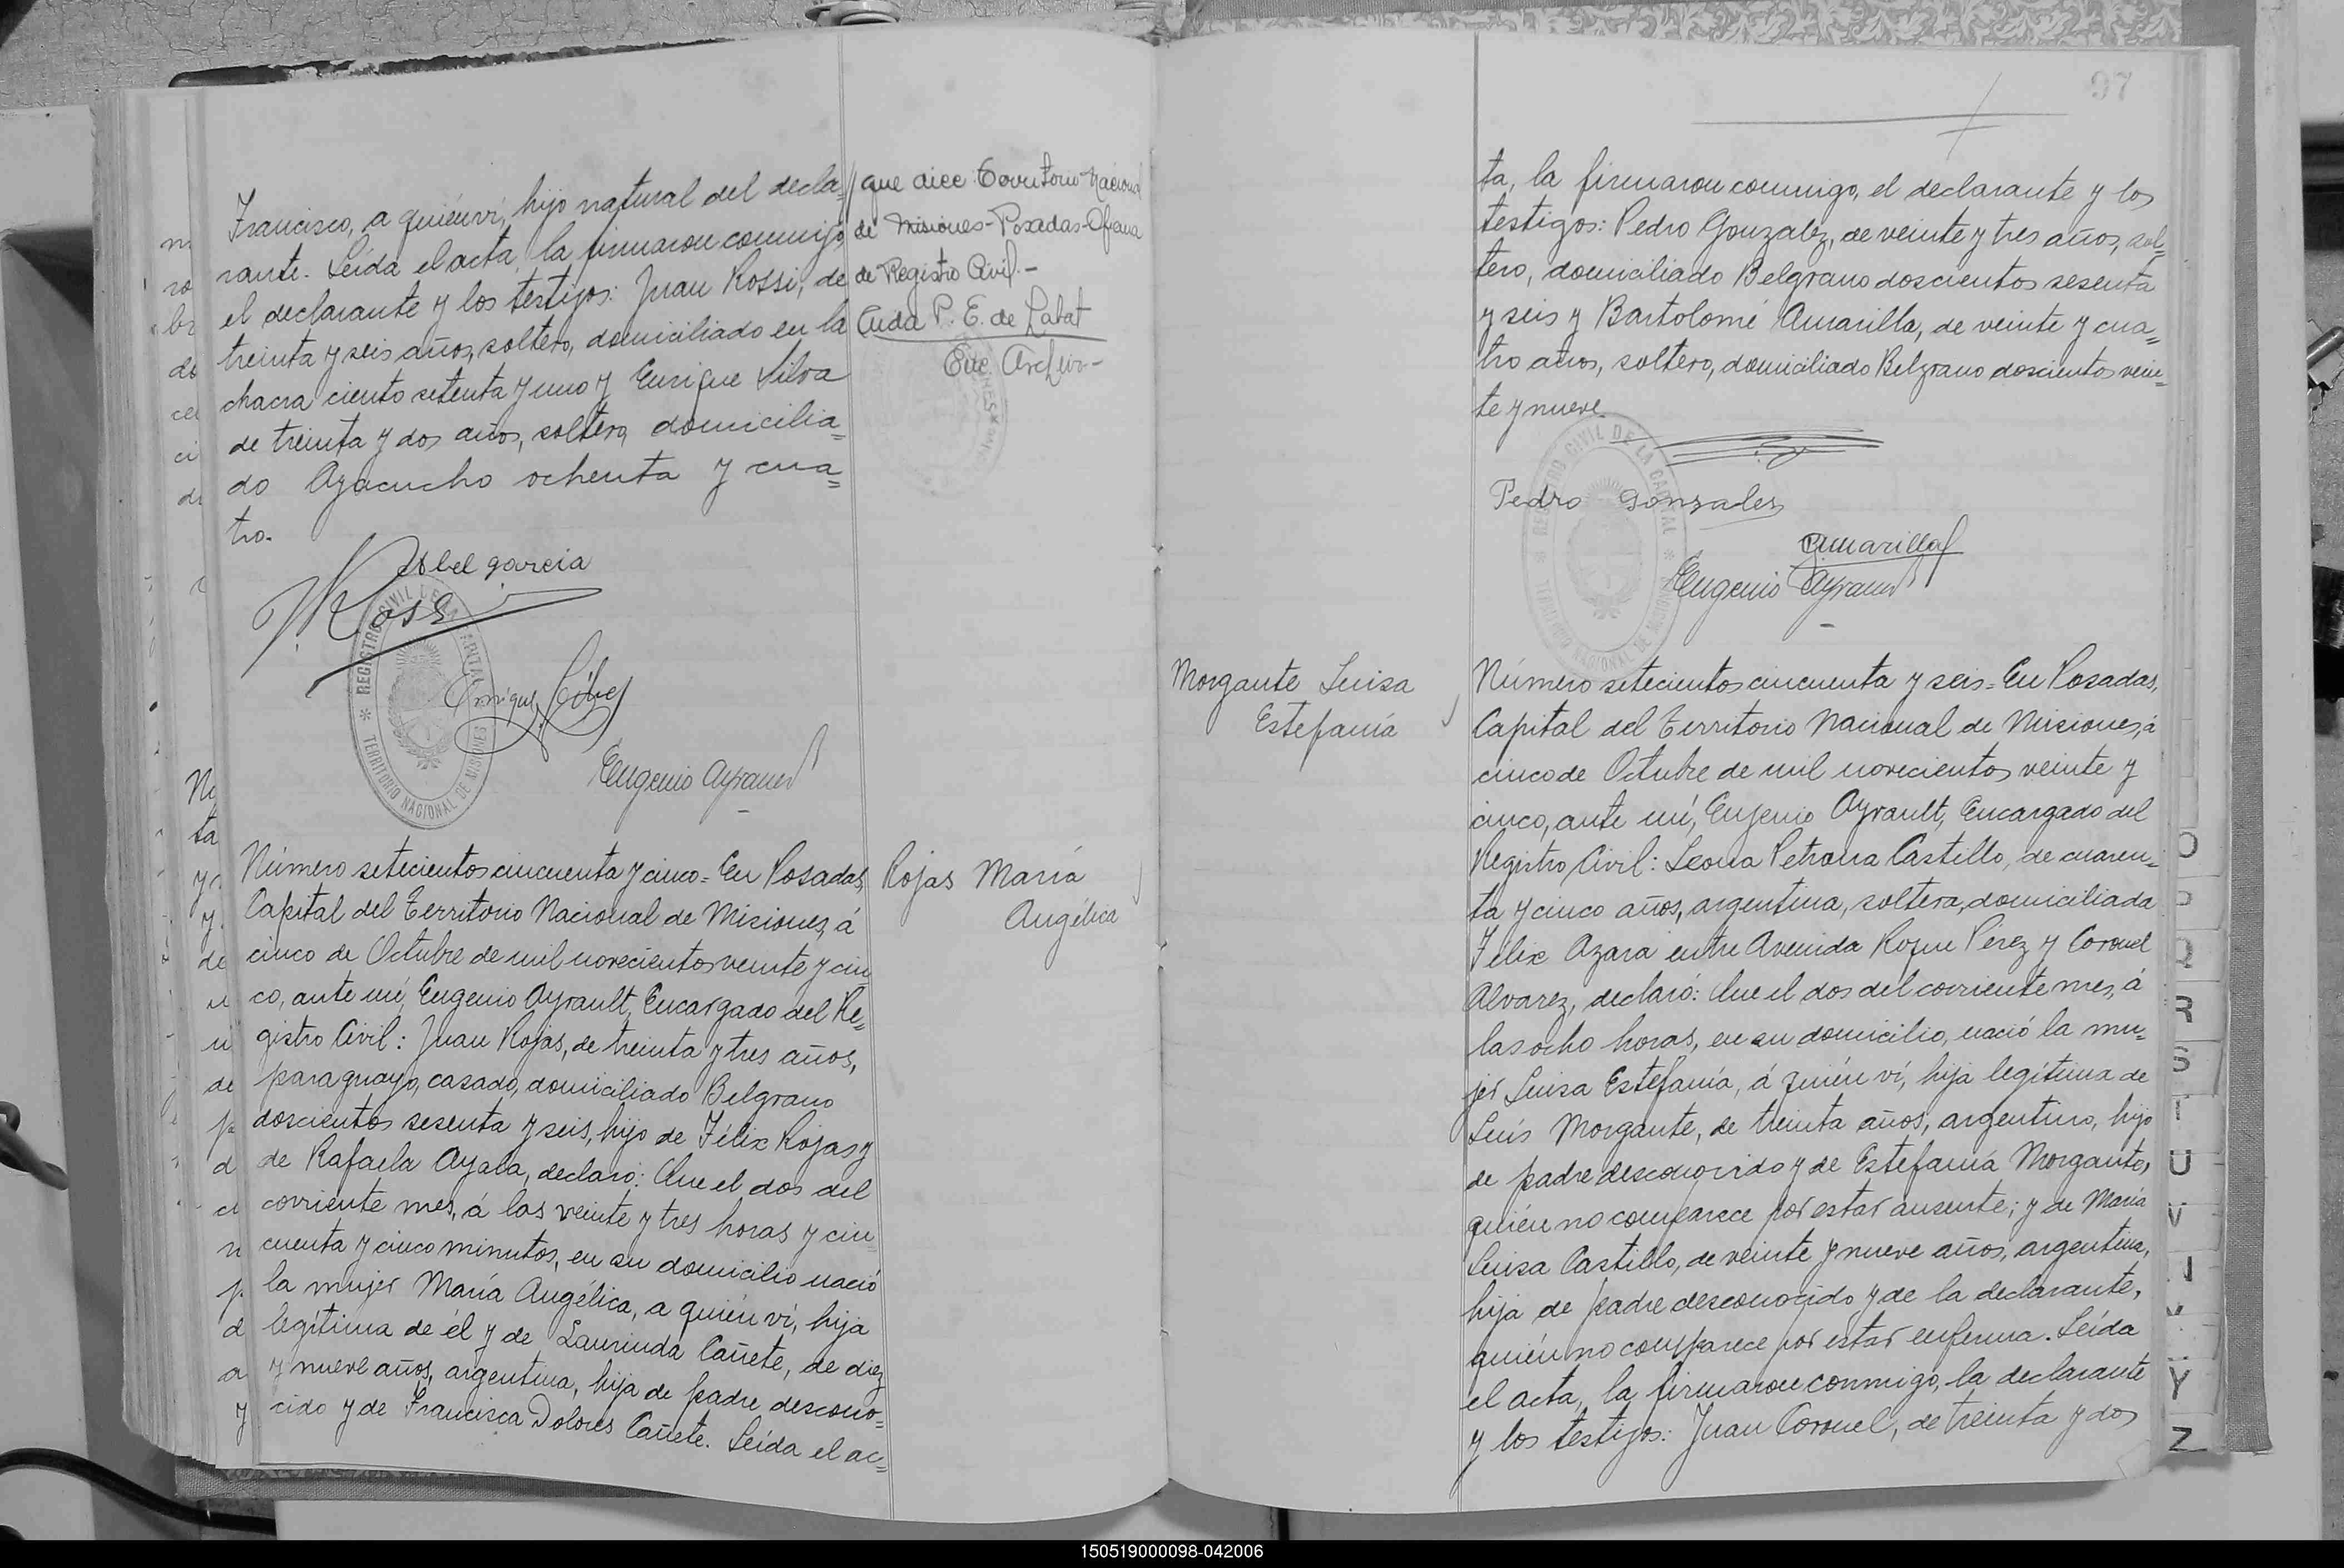 Francisco, a quién ví, hijo natural del decla=
rante. Leída el acta, la firmaron conmigo,
el declarante y los testigos: Juan Rossi, de
treinta y seis años, soltero, domiciliado en la
chacra ciento setenta y uno y Enrique Silva
de treinta y dos años, soltero, domicilia=
do Ayacucho ochenta y cua=
tro.
que dice Territorio Nacional
de Misiones-Posadas-Oficina
de Registro Civil.-
Aida P. E. de Labat
Enc Archivo-
Abel garcia
JRossi
REGISTRO CIVIL DE LA CAPITAL
TERRITORIO NACIONAL DE MISIONES
Enrique Silva
Eugenio Ayrault
Rojas María
Angélica
Número setecientos cincuenta y cinco = En Posadas,
Capital del Territorio Nacional de Misiones, á
cinco de Octubre de mil novecientos veinte y cin
co, ante mí, Eugenio Ayrault, Encargado del Re=
gistro Civil: Juan Rojas, de treinta y tres años,
paraguayo, casado, domiciliado Belgrano
doscientos sesenta y seis, hijo de Félix Rojas y
de Rafaela Ayala, declaró: Que el dos del
corriente mes, á las veinte y tres horas y cin
cuenta y cinco minutos, en su domicilio nació
la mujer María Angélica, a quién ví, hija
legítima de él y de Laurinda Cañete, de diez
y nueve años, argentina, hija de padre descono=
cido y de Francisca Dolores Cañete. Leída el ac=
97
ta, la firmaron conmigo, el declarante y los
testigos: Pedro Gonzalez, de veinte y tres años, sol=
tero, domiciliado Belgrano doscientos sesenta
y seis y Bartolomé Amarilla, de veinte y cua=
tro años, soltero, domiciliado Belgrano doscientos vein=
te y nueve.
REGISTRO CIVIL DE LA CAPITAL
TERRITORIO NACIONAL DE MISIONES
Pedro Gonzales
Amarilla
Eugenio Ayrault
Morgante Luisa
Estefanía
Número setecientos cincuenta y seis = En Posadas,
Capital del Territorio Nacional de Misiones, á
cinco de Octubre de mil novecientos veinte y
cinco, ante mí, Eugenio Ayrault, Encargado del
Registro Civil: Leona Petrona Castillo, de cuaren=
ta y cinco años, argentina, soltera, domiciliada
Félix Azara entre Avenida Roque Pérez y Coronel
Alvarez, declaró: Que el dos del corriente mes, á
las ocho horas, en su domicilio, nació la mu=
jer Luisa Estefanía, á quién ví, hija legítima de
Luís Morgante, de treinta años, argentino, hijo
de padre desconocido y de Estefanía Morgante,
quién no comparece por estar ausente; y de María
Luisa Castillo, de veinte y nueve años, argentina,
hija de padre desconocido y de la declarante,
quién no comparece por estar enferma. Leída
el acta, la firmaron conmigo, la declarante
y los testigos: Juan Coronel, de treinta y dos
O
P
Q
R
S
T
U
V
Y
Z
150519000098-042006